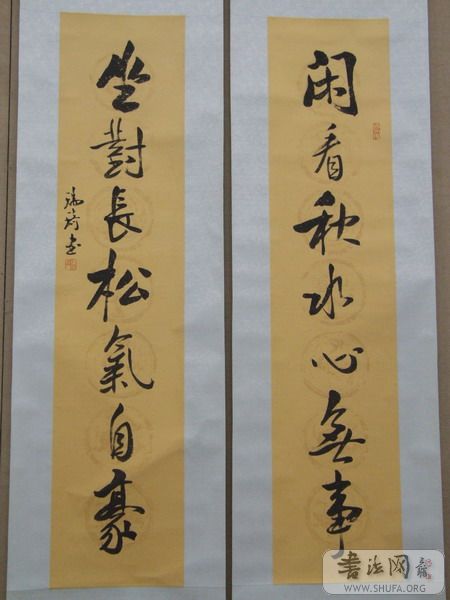 闲看秋水心無事
坐對長松氣自豪
書法网
WWW.SHUFA.ORG